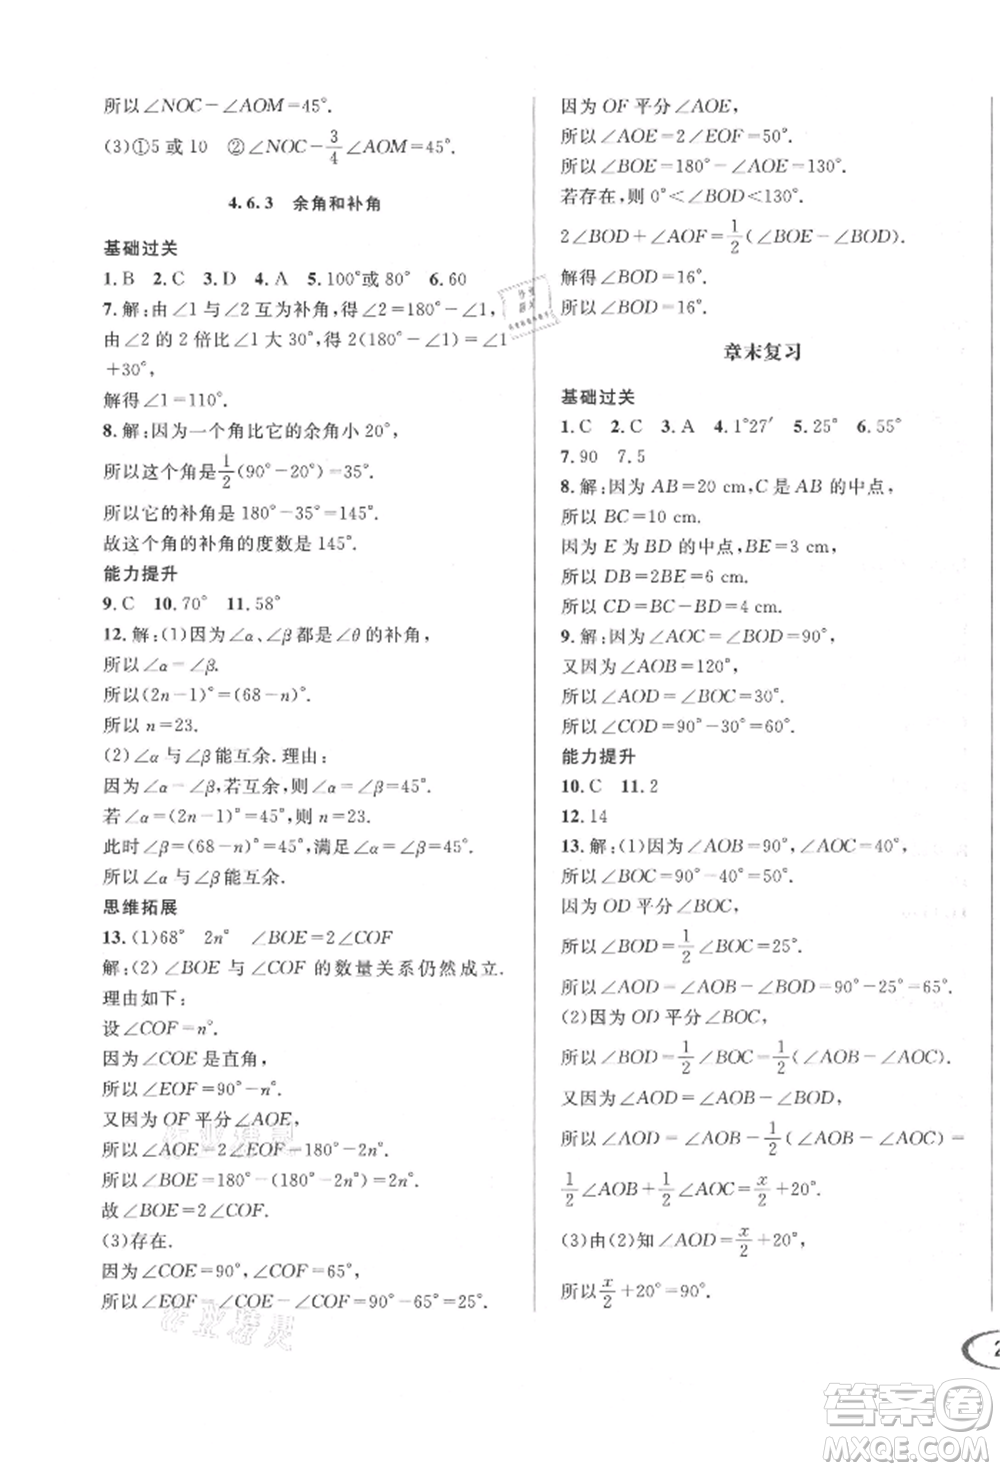 所以∠NOC－∠AOM＝45°.
(3)①5 或 10　②∠NOC－$\frac{3}{4}$∠AOM＝45°.
4.6.3　余角和补角
基础过关
1.B　2.C　3.D　4.A　5.100°或 80°　6.60
7.解:由∠1 与∠2 互为补角,得∠2＝180°－∠1,
由∠2 的 2 倍比∠1 大 30°,得 2(180°－∠1)＝∠1
＋30°,
解得∠1＝110°.
8.解:因为一个角比它的余角小 20°,
所以这个角是$\frac{1}{2}$(90°－20°)＝35°.
所以它的补角是 180°－35°＝145°.
故这个角的补角的度数是 145°.
能力提升
9.C　10.70°　11.58°
12.解:(1)因为∠α、∠β都是∠θ的补角,
所以∠α＝∠β.
所以(2n－1)°＝(68－n)°.
所以 n＝23.
(2)∠α与∠β能互余.理由:
因为∠α与∠β能互余,则∠α＝∠β＝45°,
若∠α＝(2n－1)°＝45°,则 n＝23.
此时∠β＝(68－n)°＝45°,满足∠α＝∠β＝45°.
所以∠α与∠β能互余.
思维拓展
13.(1)68°　2n°　∠BOE＝2∠COF
解:(2)∠BOE 与∠COF 的数量关系仍然成立.
理由如下:
设∠COF＝n°.
因为∠COE 是直角,
所以∠EOF＝90°－n°.
又因为 OF 平分∠AOE,
所以∠AOE＝2∠EOF＝180°－2n°.
所以∠BOE＝180°－(180°－2n°)＝2n°.
故∠BOE＝2∠COF.
(3)存在.
因为∠COE＝90°,∠COF＝65°,
所以∠EOF＝∠COE－∠COF＝90°－65°＝25°.
因为 OF 平分∠AOE,
所以∠AOE＝2∠EOF＝50°.
所以∠BOE＝180°－∠AOE＝130°.
若存在,则 0°＜∠BOD＜130°.
2∠BOD＋∠AOF＝$\frac{1}{2}$(∠BOE－∠BOD).
解得∠BOD＝16°.
所以∠BOD＝16°.
章末复习
基础过关
1.C　2.C　3.A　4.1°27′　5.25°　6.55°
7.90　7.5
8.解:因为 AB＝20 cm,C 是 AB 的中点,
所以 BC＝10 cm.
因为 E 为 BD 的中点,BE＝3 cm,
所以 DB＝2BE＝6 cm.
所以 CD＝BC－BD＝4 cm.
9.解:因为∠AOC＝∠BOD＝90°,
又因为∠AOB＝120°,
所以∠AOD＝∠BOC＝30°.
所以∠COD＝90°－30°＝60°.
能力提升
10.C　11.2
12.14
13.解:(1)因为∠AOB＝90°,∠AOC＝40°,
所以∠BOC＝90°－40°＝50°.
因为 OD 平分∠BOC,
所以∠BOD＝$\frac{1}{2}$∠BOC＝25°.
所以∠AOD＝∠AOB－∠BOD＝90°－25°＝65°.
(2)因为 OD 平分∠BOC,
所以∠BOD＝$\frac{1}{2}$∠BOC＝$\frac{1}{2}$(∠AOB－∠AOC).
所以∠AOD＝∠AOB－∠BOD
所以∠AOD＝∠AOB－$\frac{1}{2}$(∠AOB－∠AOC)＝
$\frac{1}{2}$∠AOB＋$\frac{1}{2}$∠AOC＝$\frac{x}{2}$＋20°.
(3)由(2)知∠AOD＝$\frac{x}{2}$＋20°,
所以$\frac{x}{2}$＋20°＝65°.
2
答案卷
MXQE.COM